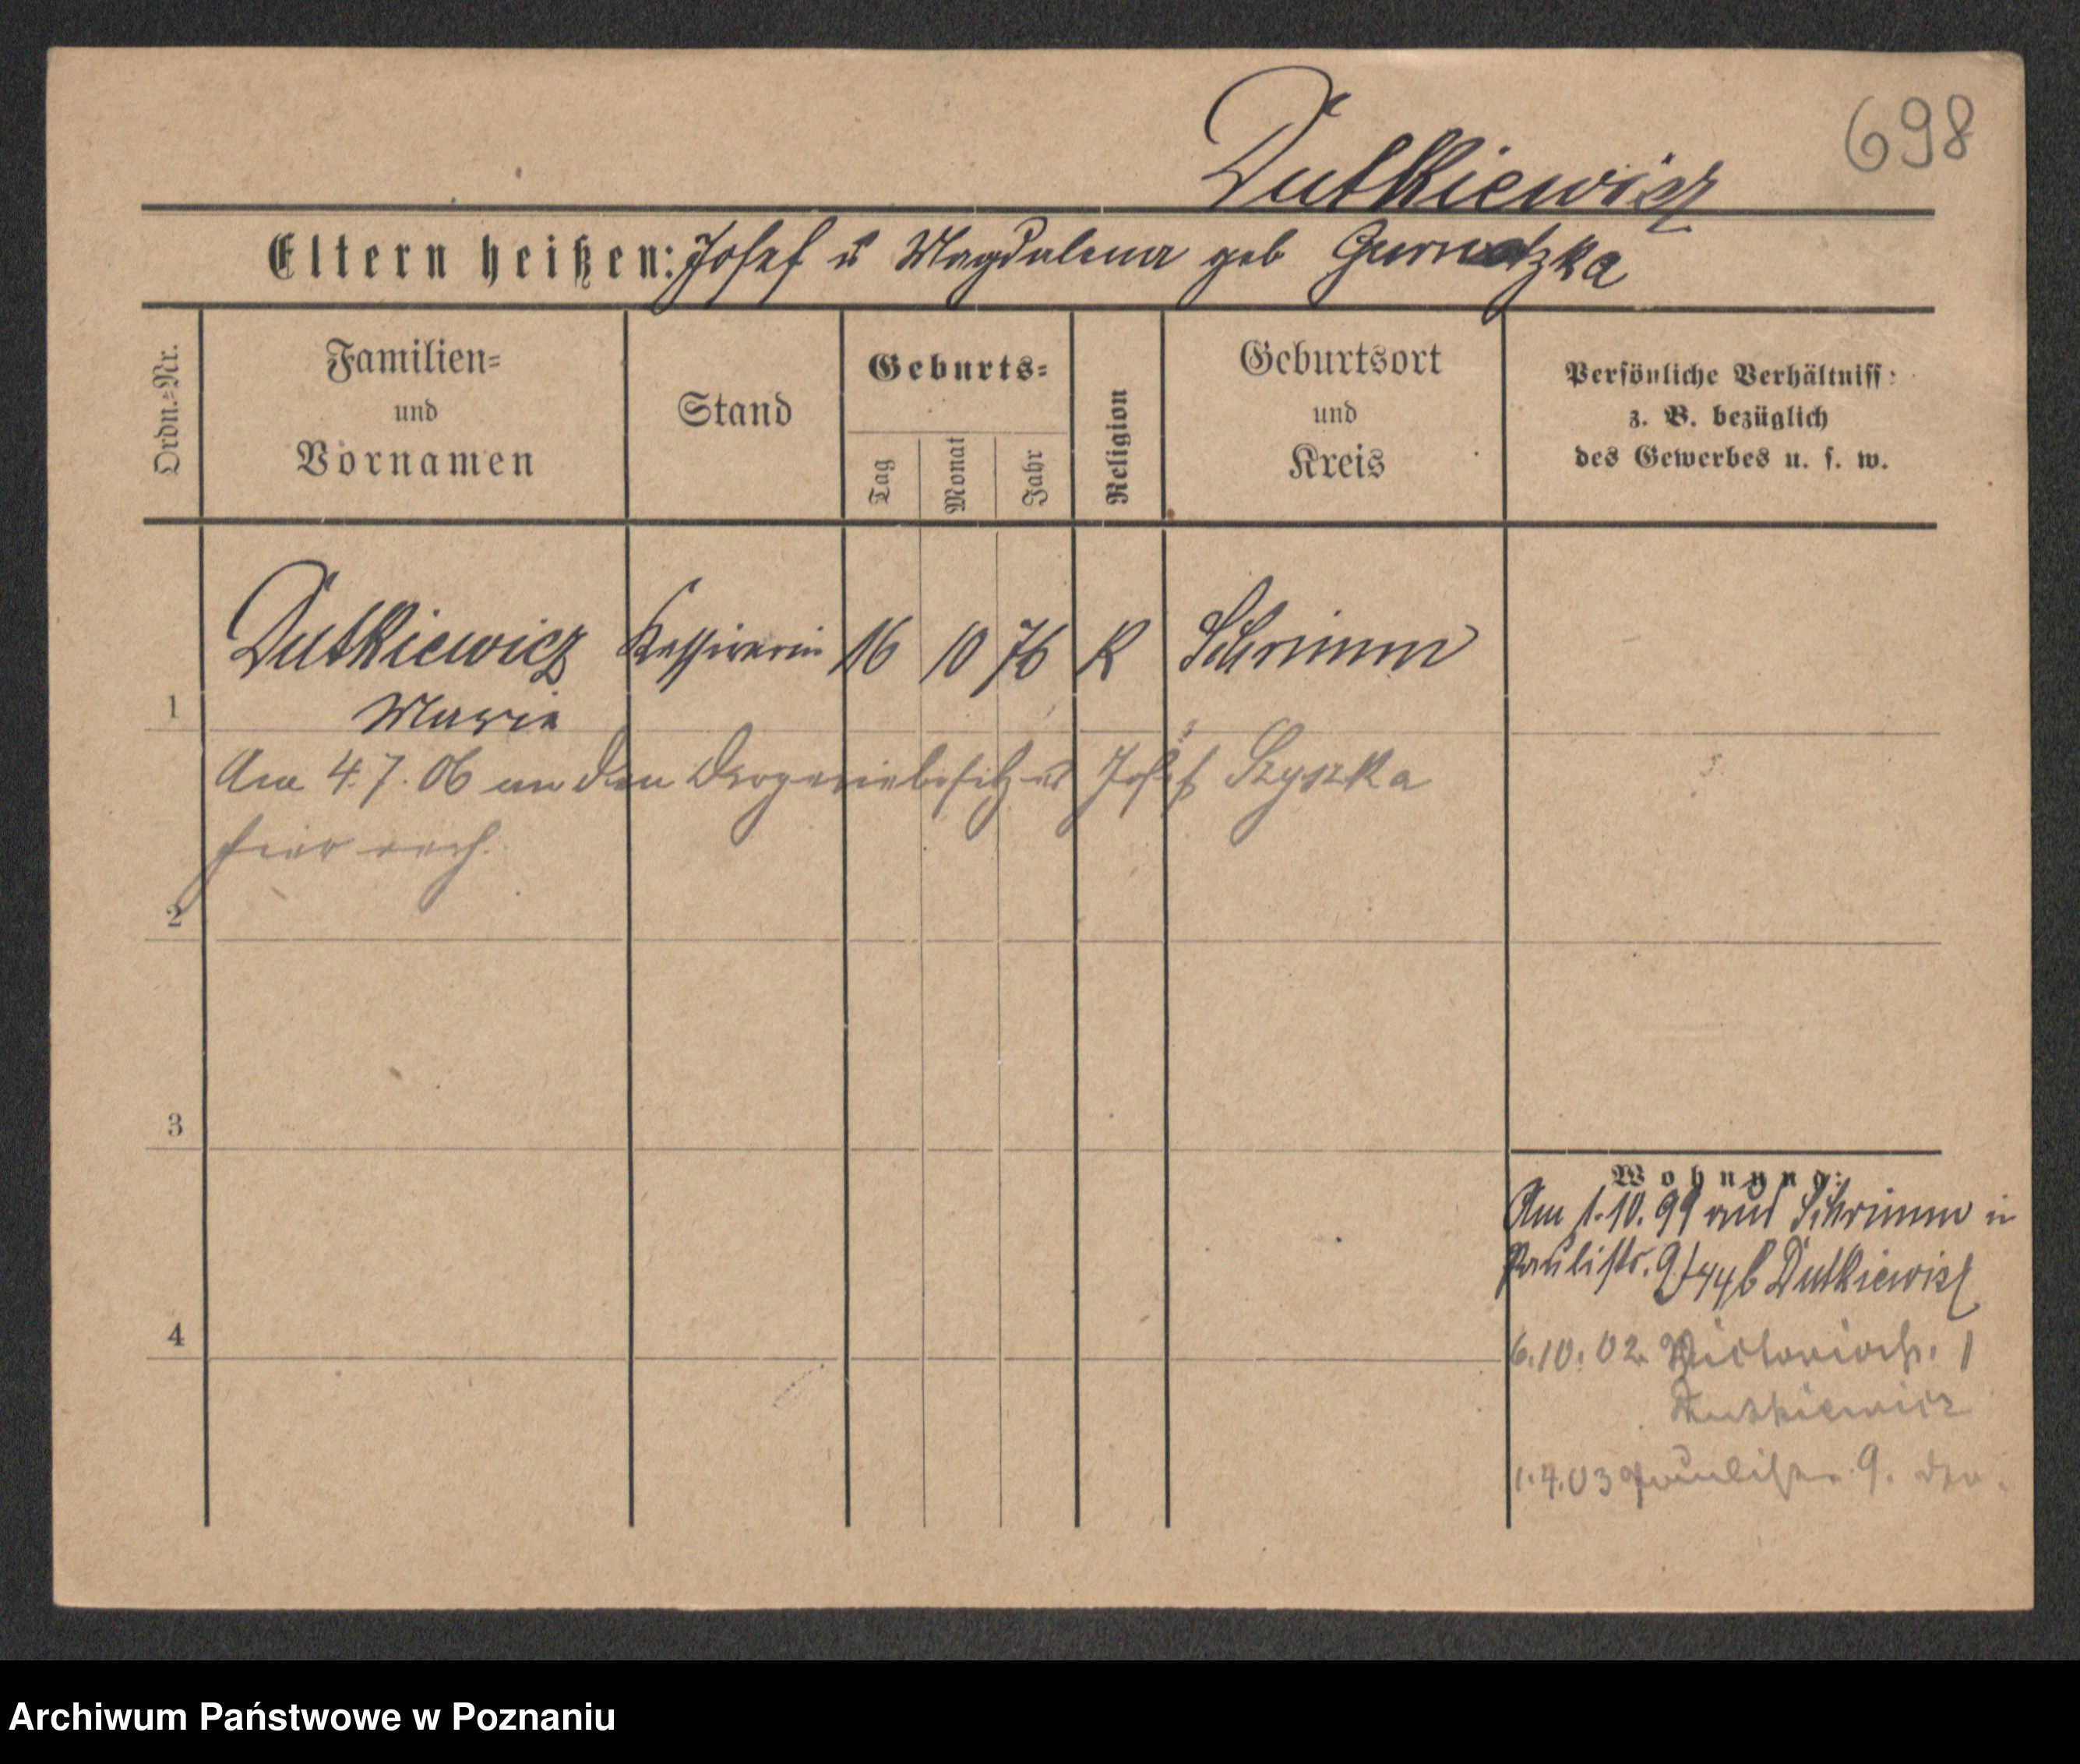 698
Dutkiewicz
Eltern heißen: Josef u Magdalena geb
Ordn.=Nr.
Familien=
und
Vornamen
Stand
Geburts=
Tag
Monat
Jahr
Religion
Geburtsort
und
Kreis
Persönliche Verhältniss:
z. B. bezüglich
des Gewerbes u. s. w.
1
Dutkiewicz Kassirerin 16 10 76 K Schrimm
Marie
Am 4.7.06 an den Drogeriebesitzer Josef Szyszka
hier verh.
2
3
4
Wohnung:
Am 1.10.99 aus Schrimm in
Paulistr. 9/ b Dutkiewicz
6.10.02 Victoriastr. 1
Dutkiewicz
1.4.03 Paulistr. 9.
Archiwum Państwowe w Poznaniu